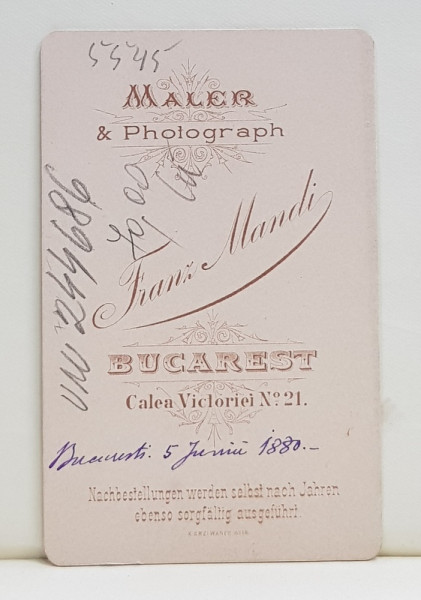 5545
MALER
& Photograph
Franz Mandi
BUCAREST
Calea Victoriei No. 21.
Bucuresti. 5 Junii 1880.-
Nachbestellungen werden selbst nach Jahren
ebenso sorgfältig ausgeführt.
244686